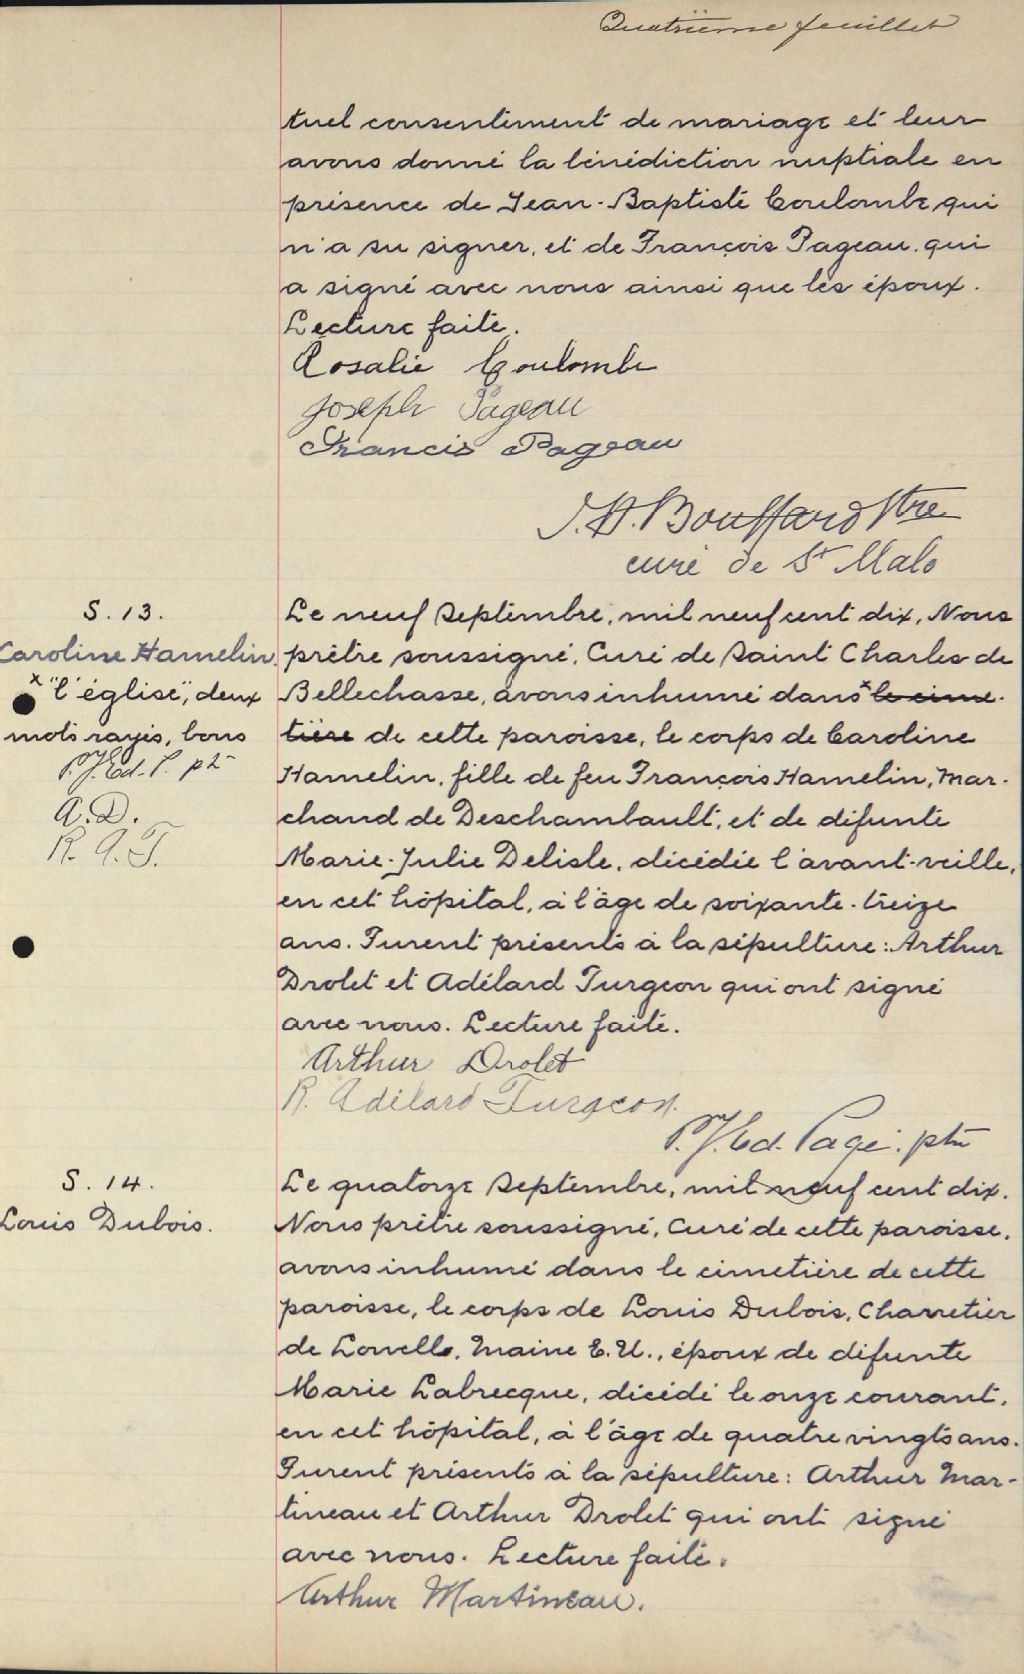 Quatrième feuillet
tuel consentement de mariage et leur
avons donné la bénédiction nuptiale en
présence de Jean-Baptiste Coulombe, qui
n'a su signer, et de François Pageau, qui
a signé avec nous ainsi que les époux.
Lecture faite.
Rosalie Coulombe
Joseph Pageau
Francis Pageau
J. H. Bouffard Ptre
curé de St Malo
S. 13.
Caroline Hamelin.
x "l'église", deux
mots rayés, bons
P. J. Ed. P. ptr
A. D.
R. A. T.
Le neuf Septembre, mil neuf cent dix, Nous
prêtre soussigné, Curé de Saint Charles de
Bellechasse, avons inhumé dans x le cime-
tière de cette paroisse, le corps de Caroline
Hamelin, fille de feu François Hamelin, Mar-
chand de Deschambault, et de défunte
Marie-Julie Delisle, décédée l'avant-veille,
en cet hôpital, à l'âge de soixante-treize
ans. Furent présents à la sépulture: Arthur
Drolet et Adélard Turgeon qui ont signé
avec nous. Lecture faite.
Arthur Drolet
R. Adélard Turgeon.
P. J. Ed. Pagé. ptre
S. 14.
Louis Dubois.
Le quatorze Septembre, mil neuf cent dix.
Nous prêtre soussigné, Curé de cette paroisse,
avons inhumé dans le cimetière de cette
paroisse, le corps de Louis Dubois, Charretier
de Lowell, Maine E. U., époux de défunte
Marie Labrecque, décédé le onze courant,
en cet hôpital, à l'âge de quatre vingts ans.
Furent présents à la sépulture: Arthur Mar-
tineau et Arthur Drolet qui ont signé
avec nous. Lecture faite.
Arthur Martineau.